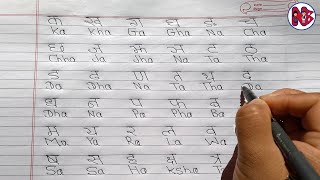 क ख ग घ ङ च
Ka kha Ga Gha Na Cha
छ ज झ ञ ट ठ
Chha Ja Jha Na Ta Tha
ड ढ ण त थ द
Da Dha Na Ta Tha Da
ध न प फ ब
Dha Na Pa Pha Ba
म य र ल व
Ma Ya Ra La Wa
ष स ह क्ष त्र
Sa Sa Ha ksha